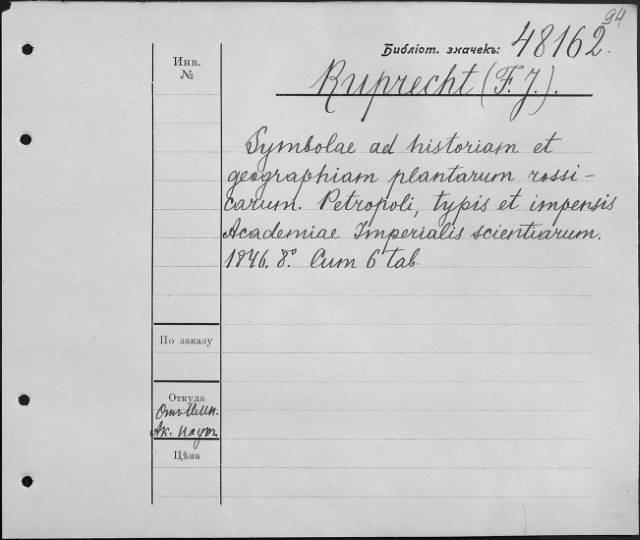 94
Библіот. значекъ: 48162.
Инв.
№
Ruprecht (F. J.).
Symbolae ad historiam et
geographiam plantarum rossi-
carum. Petropoli, typis et impensis
Academiae Imperialis scientiarum.
1846. 8º. Cum 6 tab.
По заказу
Откуда
Отъ Имп.
Ак. Наукъ.
Цѣна